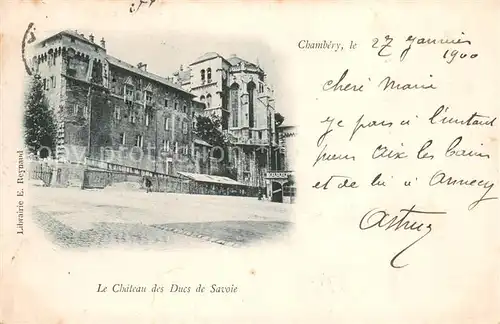 Chambéry, le 27 Janvier 1900
cheré Marie
je pars à l'instant
pour Aix les bains
et de là à Annecy
Astruz
Librairie E. Reynaud
Le Château des Ducs de Savoie